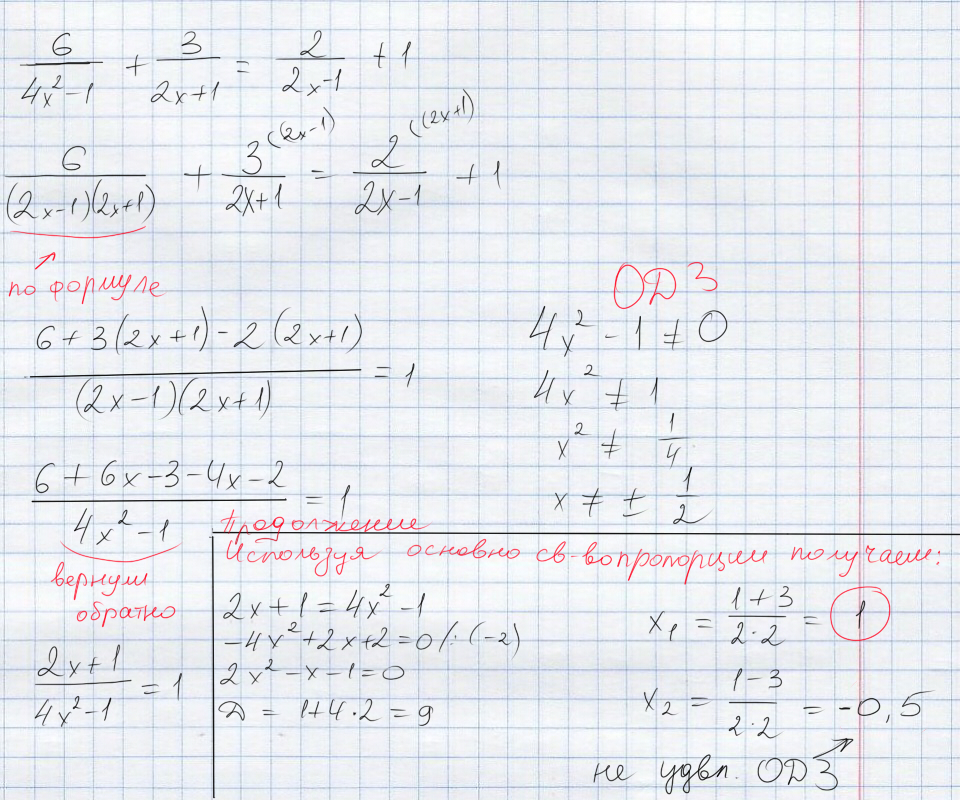 6/(4x²-1) + 3/(2x+1) = 2/(2x-1) + 1
6/((2x-1)(2x+1)) + 3^((2x-1)/(2x+1) = 2^((2x+1)/(2x-1) + 1
по формуле
(6+3(2x+1)-2(2x+1))/((2x-1)(2x+1)) = 1
(6+6x-3-4x-2)/(4x²-1) = 1
вернули
обратно
(2x+1)/(4x²-1) = 1
ОДЗ
4x²-1≠0
4x²≠1
x²≠1/4
x≠±1/2
продолжение
Используя основно св-вопропорции получаем:
2x+1=4x²-1
-4x²+2x+2=0/:(-2)
2x²-x-1=0
D=1+4·2=9
x₁ = (1+3)/(2·2) = 1
x₂ = (1-3)/(2·2) = -0,5
не удвл. ОДЗ